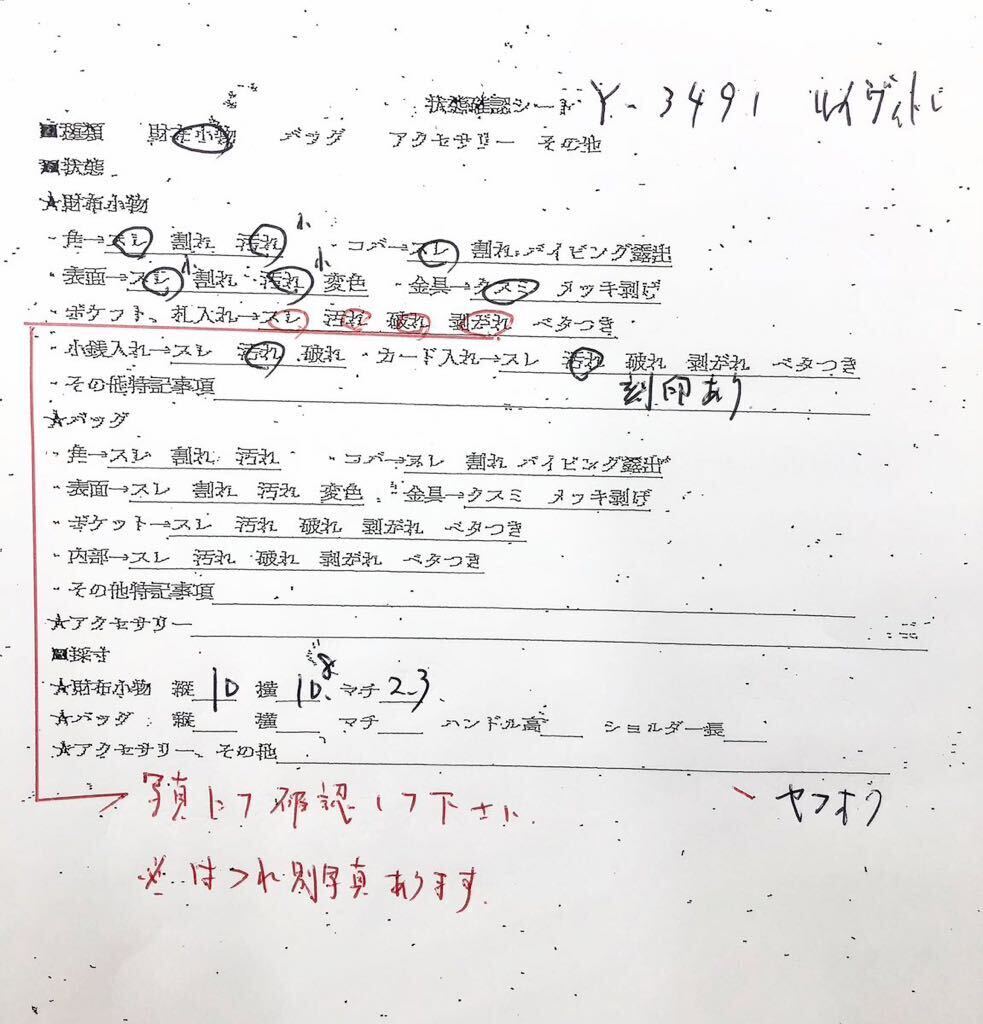 状態確認シート Y-3491 ルイヴィトン
■種類 財布小物 バッグ アクセサリー その他
■状態
★財布小物
・角→スレ 割れ 汚れ 小 ・コバ→スレ 割れ パイピング露出
・表面→スレ 小 割れ 汚れ 小 変色 ・金具→クスミ メッキ剥げ
・ポケット、札入れ→スレ 汚れ 破れ 剥がれ ベタつき
・小銭入れ→スレ 汚れ 破れ ・カード入れ→スレ 汚れ 破れ 剥がれ ベタつき
・その他特記事項 刻印あり
★バッグ
・角→スレ 割れ 汚れ ・コバ→スレ 割れ パイピング露出
・表面→スレ 割れ 汚れ 変色 ・金具→クスミ メッキ剥げ
・ポケット→スレ 汚れ 破れ 剥がれ ベタつき
・内部→スレ 汚れ 破れ 剥がれ ベタつき
・その他特記事項
★アクセサリー
■採寸
★財布小物 縦 10 横 10.8 マチ 2.3
★バッグ 縦 横 マチ ハンドル高 ショルダー長
★アクセサリー、その他
写真にて確認して下さい ヤフオク
※ ほつれ別写真あります